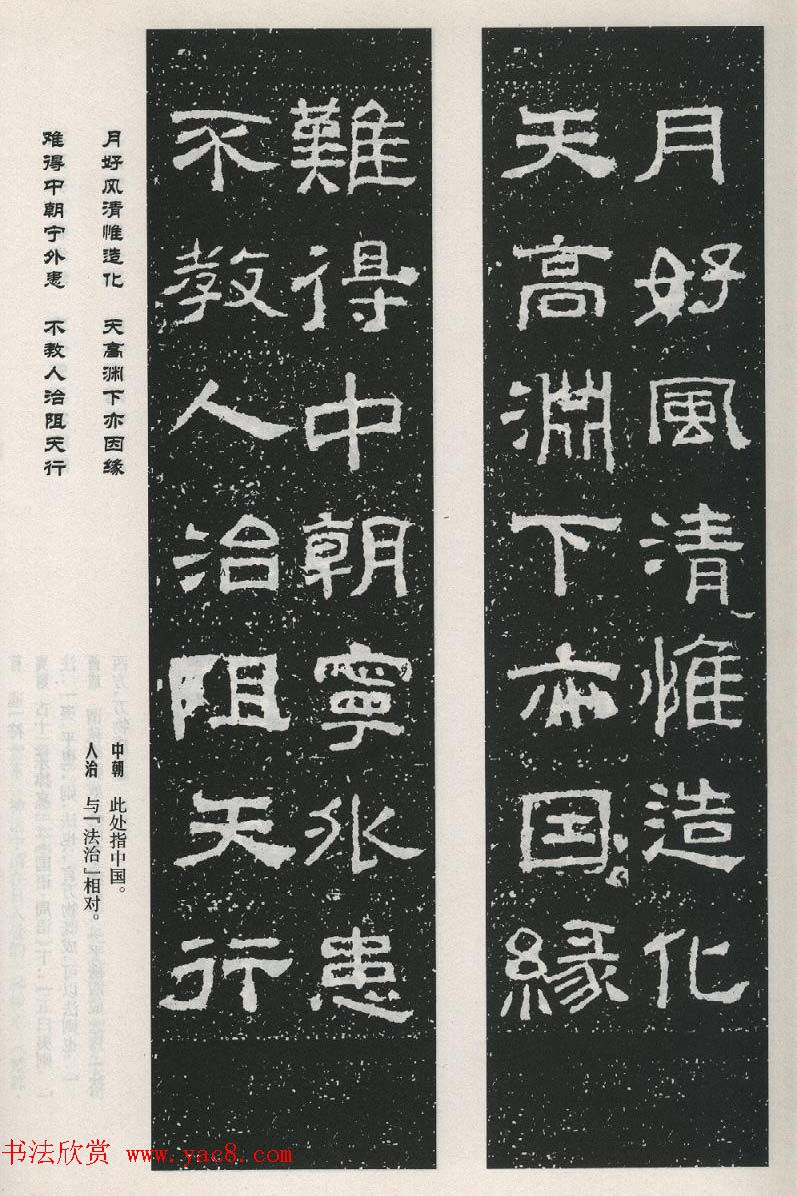 月好風清惟造化
天高淵下亦因緣
難得中朝寧外患
不教人治阻天行
月好风清惟造化 天高渊下亦因缘
难得中朝宁外患 不教人治阻天行
中朝 此处指中国。
人治 与「法治」相对。
书法欣赏 www.yac8.com